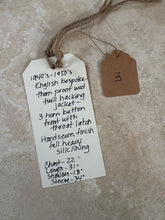 1940's-1950's
English bespoke
thorn proof wool
twill hacking
jacket -
3 horn button
front with
throat latch
Handsewn finish
full heavy
silk lining
Chest - 22"
Length - 31"
Shoulder - 18"
Sleeve - 24"
3